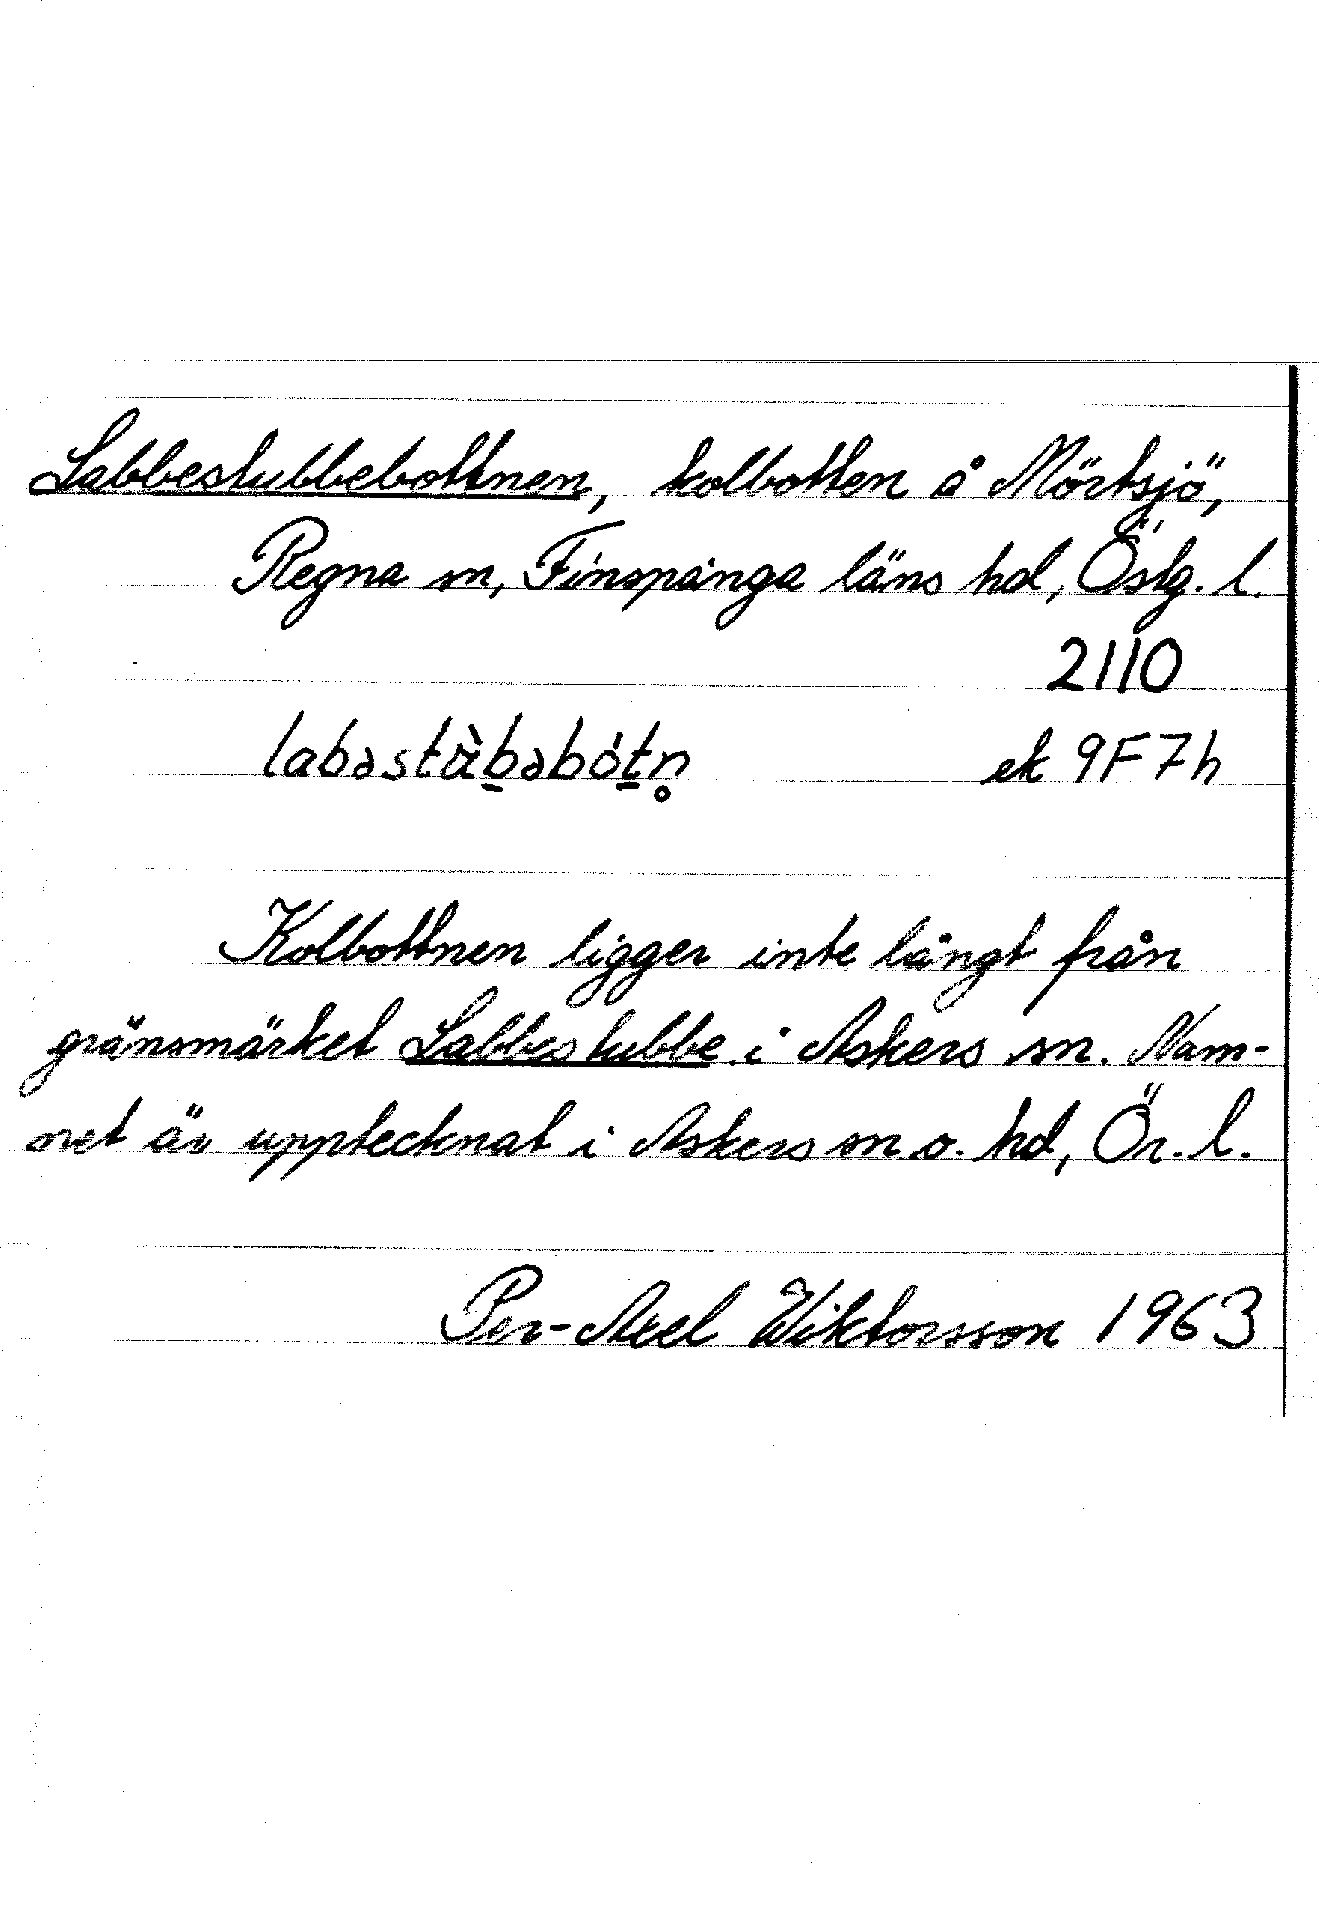 Labbestubbebottnen, kolbotten å Mörtsjö,
Regna sn, Finspånga läns hd, Östg. l.
2110
labəstὰbəbótn̥ ek 9F7h
Kolbottnen ligger inte långt från
gränsmärket Labbes tubbe i Askers sn. Nam-
net är upptecknat i Askers sn o. hd, Ör. l.
Per-Axel Wiktorsson 1963